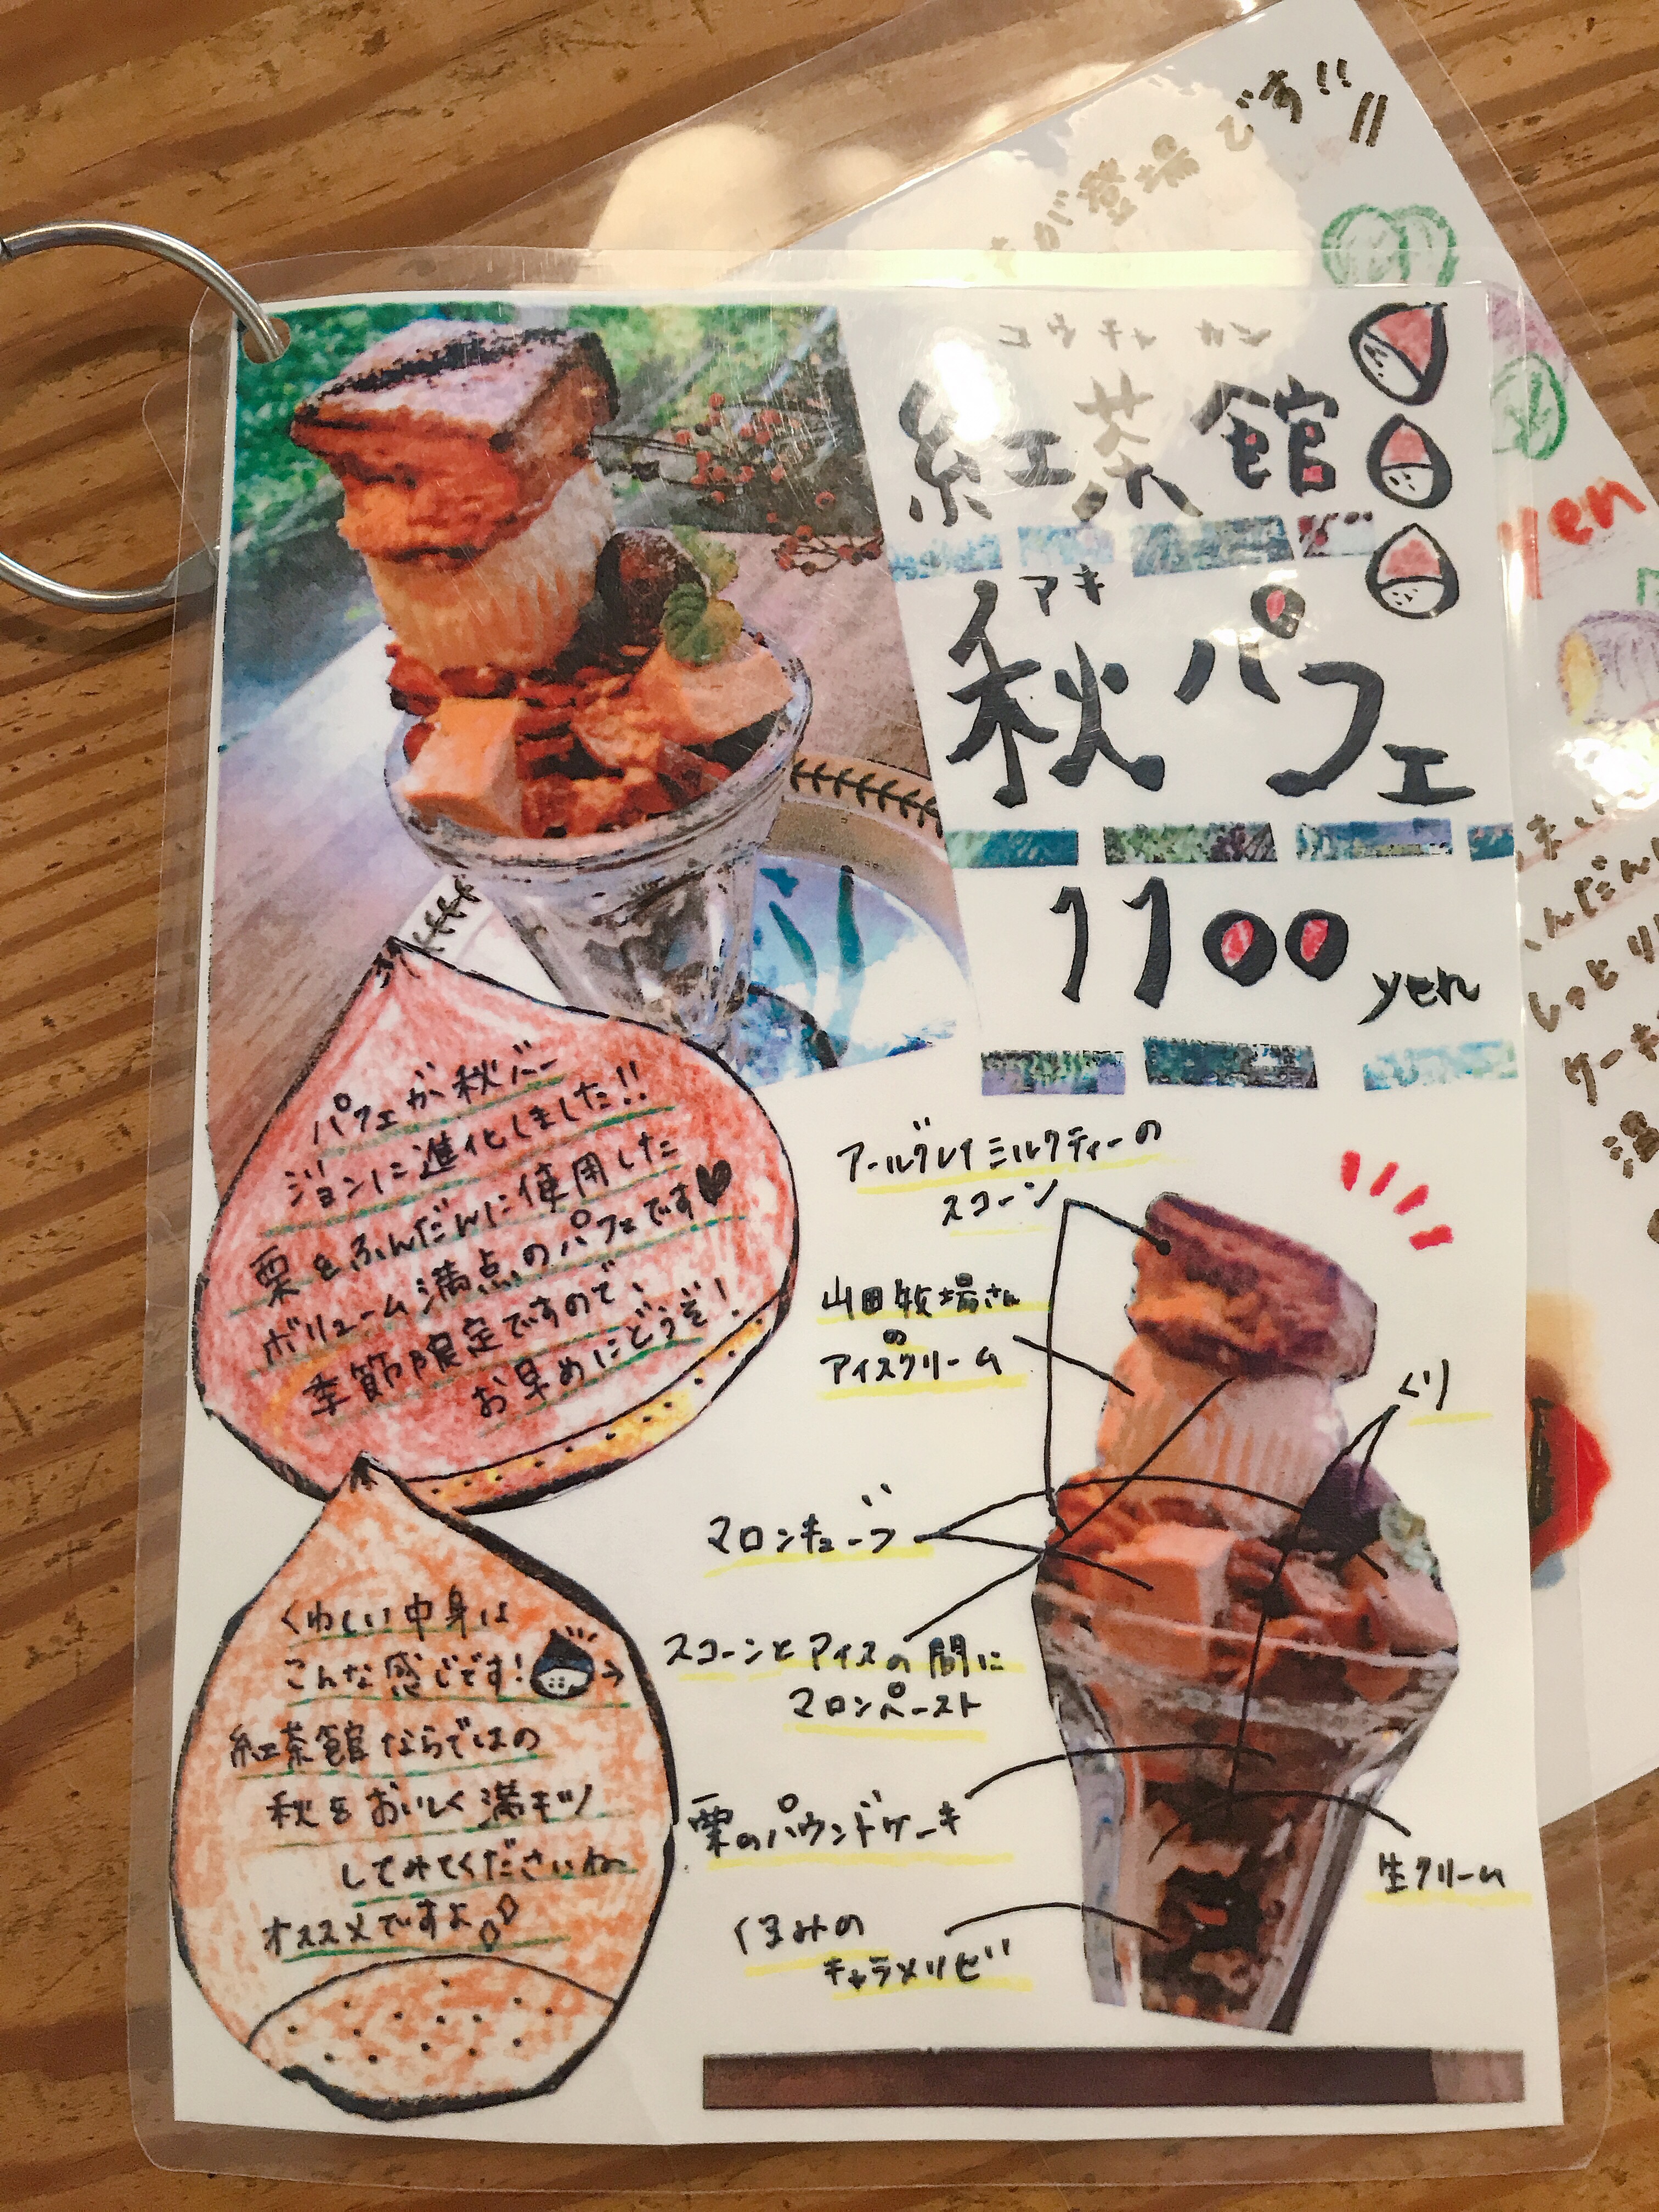 が登場です!!
コウチャカン
紅茶館
アキ
秋パフェ
1100 yen
パフェが秋バー
ジョンに進化しました!!
栗をふんだんに使用した
ボリューム満点のパフェです♥
季節限定ですので、
お早めにどうぞ!
くわしい中身は
こんな感じです!→
紅茶館ならではの
秋をおいしく満キツ
してみてくださいね
オススメですよ
アールグレイミルクティーの
スコーン
山田牧場さん
の
アイスクリーム
くり
マロンキューブ
スコーンとアイスの間に
マロンペースト
栗のパウンドケーキ
生クリーム
くるみの
キャラメリゼ
yen
んだん
しっとり
ケーキ
温